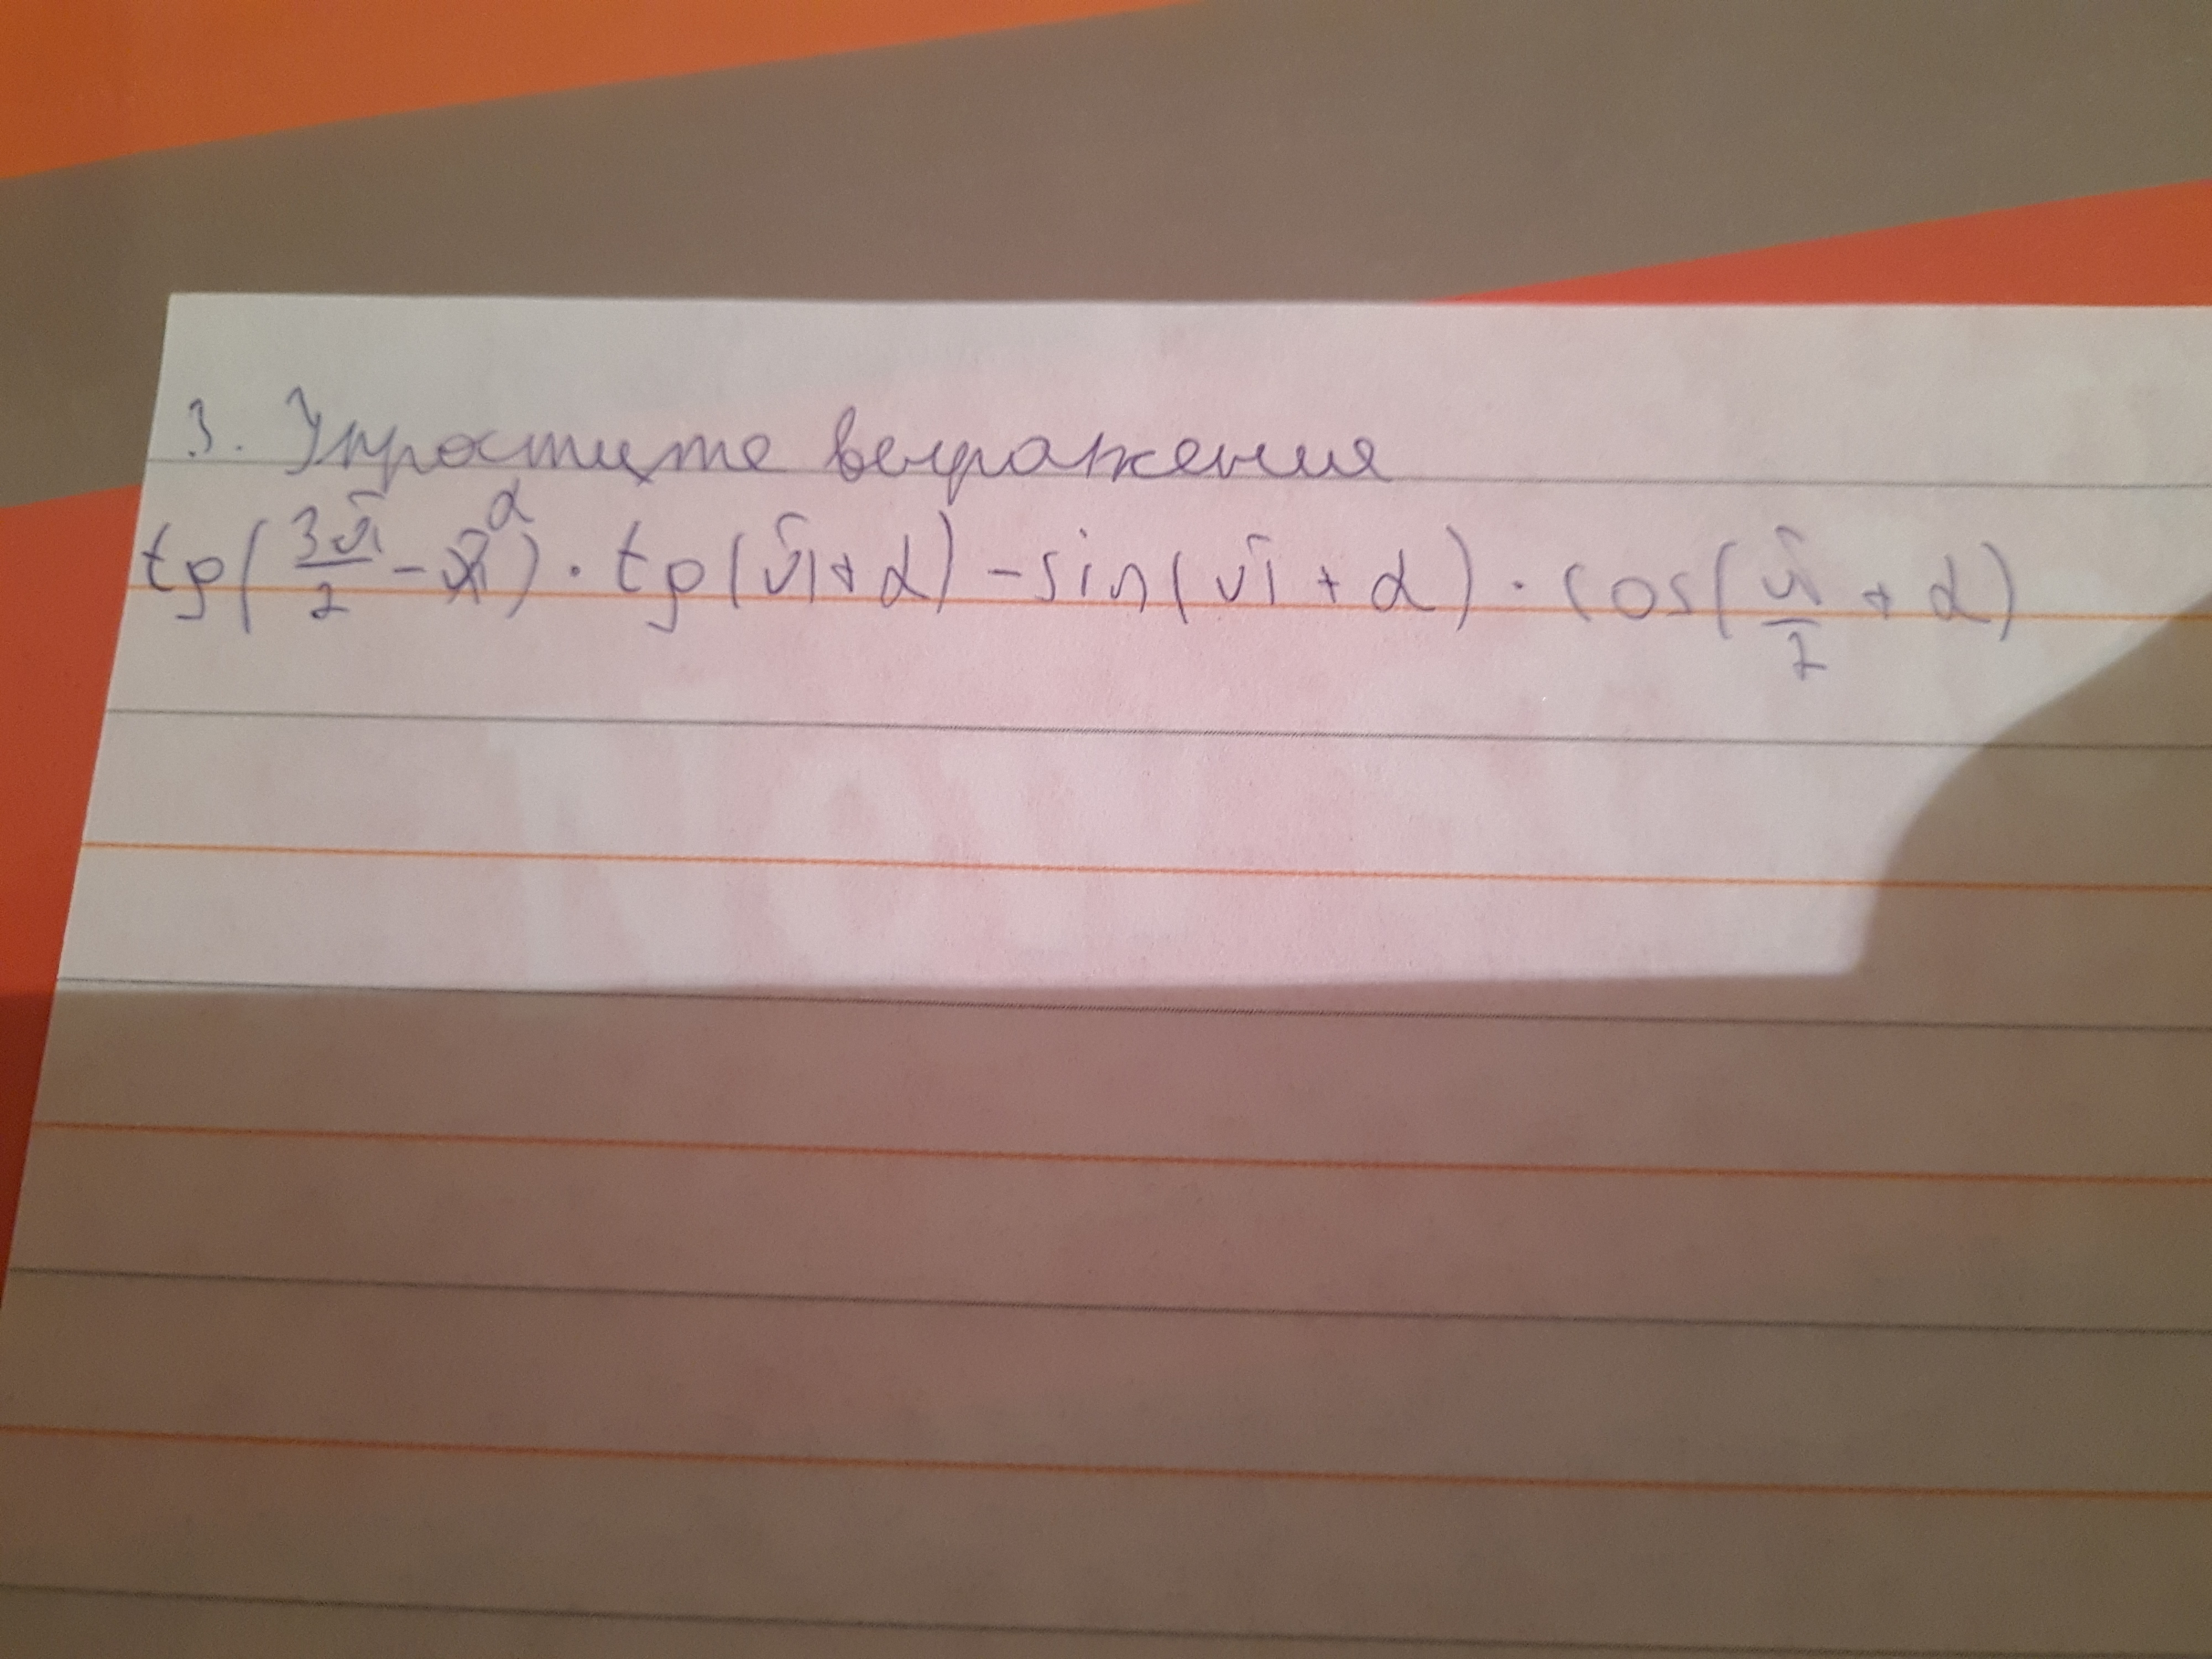 3. Упростите выражения
tg(3π/2 - α) · tg(π + α) - sin(π + α) · cos(π/2 + α)